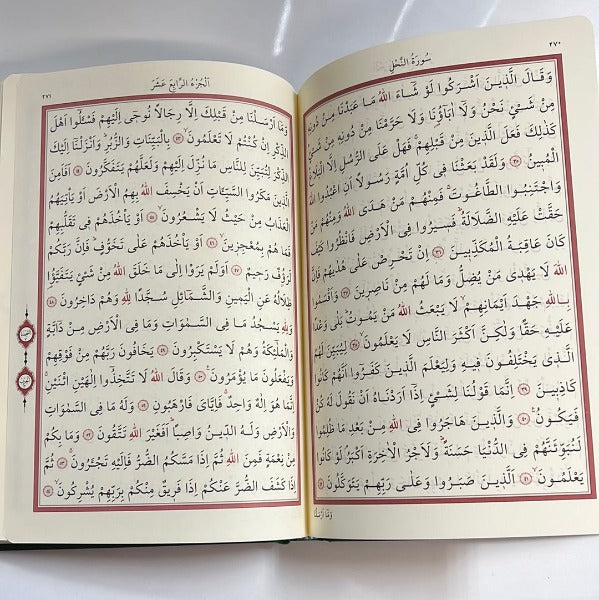 ٢٧٠
سُورَةُ النَّحْلِ
وَقَالَ الَّذ۪ينَ اَشْرَكُوا لَوْ شَٓاءَ اللّٰهُ مَا عَبَدْنَا مِنْ دُونِه۪
مِنْ شَيْءٍ نَحْنُ وَلَٓا اٰبَٓاؤُ۬نَا وَلَا حَرَّمْنَا مِنْ دُونِه۪ مِنْ شَيْءٍۜ
كَذٰلِكَ فَعَلَ الَّذ۪ينَ مِنْ قَبْلِهِمْۚ فَهَلْ عَلَى الرُّسُلِ اِلَّا الْبَلَاغُ
الْمُب۪ينُ ﴿٣٥﴾ وَلَقَدْ بَعَثْنَا ف۪ي كُلِّ اُمَّةٍ رَسُولًا اَنِ اعْبُدُوا اللّٰهَ
وَاجْتَنِبُوا الطَّاغُوتَۚ فَمِنْهُمْ مَنْ هَدَى اللّٰهُ وَمِنْهُمْ مَنْ
حَقَّتْ عَلَيْهِ الضَّلَالَةُۜ فَس۪يرُوا فِي الْاَرْضِ فَانْظُرُوا كَيْفَ
كَانَ عَاقِبَةُ الْمُكَذِّب۪ينَ ﴿٣٦﴾ اِنْ تَحْرِصْ عَلٰى هُدٰيهُمْ فَاِنَّ
اللّٰهَ لَا يَهْد۪ي مَنْ يُضِلُّ وَمَا لَهُمْ مِنْ نَاصِر۪ينَ ﴿٣٧﴾ وَاَقْسَمُوا
بِاللّٰهِ جَهْدَ اَيْمَانِهِمْۙ لَا يَبْعَثُ اللّٰهُ مَنْ يَمُوتُۜ بَلٰى وَعْدًا
عَلَيْهِ حَقًّا وَلٰكِنَّ اَكْثَرَ النَّاسِ لَا يَعْلَمُونَۙ ﴿٣٨﴾ لِيُبَيِّنَ لَهُمُ
الَّذ۪ي يَخْتَلِفُونَ ف۪يهِ وَلِيَعْلَمَ الَّذ۪ينَ كَفَرُٓوا اَنَّهُمْ كَانُوا
كَاذِب۪ينَ ﴿٣٩﴾ اِنَّمَا قَوْلُنَا لِشَيْءٍ اِذَٓا اَرَدْنَاهُ اَنْ نَقُولَ لَهُ كُنْ
فَيَكُونُ۟ ﴿٤٠﴾ وَالَّذ۪ينَ هَاجَرُوا فِي اللّٰهِ مِنْ بَعْدِ مَا ظُلِمُوا
لَنُبَوِّئَنَّهُمْ فِي الدُّنْيَا حَسَنَةًۜ وَلَاَجْرُ الْاٰخِرَةِ اَكْبَرُۢ لَوْ كَانُوا
يَعْلَمُونَۙ ﴿٤١﴾ اَلَّذ۪ينَ صَبَرُوا وَعَلٰى رَبِّهِمْ يَتَوَكَّلُونَ ﴿٤٢﴾
وَمَٓا اَرْسَلْنَا
اَلْجُزْءُ الرَّابِعَ عَشَرَ
٢٧١
وَمَٓا اَرْسَلْنَا مِنْ قَبْلِكَ اِلَّا رِجَالًا نُوح۪ٓي اِلَيْهِمْ فَسْـَٔلُٓوا اَهْلَ
الذِّكْرِ اِنْ كُنْتُمْ لَا تَعْلَمُونَۙ ﴿٤٣﴾ بِالْبَيِّنَاتِ وَالزُّبُرِۜ وَاَنْزَلْنَٓا اِلَيْكَ
الذِّكْرَ لِتُبَيِّنَ لِلنَّاسِ مَا نُزِّلَ اِلَيْهِمْ وَلَعَلَّهُمْ يَتَفَكَّرُونَ ﴿٤٤﴾ اَفَاَمِنَ
الَّذ۪ينَ مَكَرُوا السَّيِّـَٔاتِ اَنْ يَخْسِفَ اللّٰهُ بِهِمُ الْاَرْضَ اَوْ يَأْتِيَهُمُ
الْعَذَابُ مِنْ حَيْثُ لَا يَشْعُرُونَۙ ﴿٤٥﴾ اَوْ يَأْخُذَهُمْ ف۪ي تَقَلُّبِهِمْ
فَمَا هُمْ بِمُعْجِز۪ينَۙ ﴿٤٦﴾ اَوْ يَأْخُذَهُمْ عَلٰى تَخَوُّفٍۜ فَاِنَّ رَبَّكُمْ
لَرَؤُ۫فٌ رَح۪يمٌ ﴿٤٧﴾ اَوَلَمْ يَرَوْا اِلٰى مَا خَلَقَ اللّٰهُ مِنْ شَيْءٍ يَتَفَيَّؤُ۬ا
ظِلَالُهُ عَنِ الْيَم۪ينِ وَالشَّمَٓائِلِ سُجَّدًا لِلّٰهِ وَهُمْ دَاخِرُونَ ﴿٤٨﴾
وَلِلّٰهِ يَسْجُدُ مَا فِي السَّمٰوَاتِ وَمَا فِي الْاَرْضِ مِنْ دَٓابَّةٍ
وَالْمَلٰٓئِكَةُ وَهُمْ لَا يَسْتَكْبِرُونَ ﴿٤٩﴾ يَخَافُونَ رَبَّهُمْ مِنْ فَوْقِهِمْ
وَيَفْعَلُونَ مَا يُؤْمَرُونَ۟ ﴿٥٠﴾ وَقَالَ اللّٰهُ لَا تَتَّخِذُٓوا اِلٰهَيْنِ اثْنَيْنِۚ
اِنَّمَا هُوَ اِلٰهٌ وَاحِدٌۚ فَاِيَّايَ فَارْهَبُونِ ﴿٥١﴾ وَلَهُ مَا فِي السَّمٰوَاتِ
وَالْاَرْضِ وَلَهُ الدّ۪ينُ وَاصِبًاۜ اَفَغَيْرَ اللّٰهِ تَتَّقُونَ ﴿٥٢﴾ وَمَا بِكُمْ
مِنْ نِعْمَةٍ فَمِنَ اللّٰهِ ثُمَّ اِذَا مَسَّكُمُ الضُّرُّ فَاِلَيْهِ تَجْـَٔرُونَۚ ﴿٥٣﴾ ثُمَّ
اِذَا كَشَفَ الضُّرَّ عَنْكُمْ اِذَا فَر۪يقٌ مِنْكُمْ بِرَبِّهِمْ يُشْرِكُونَۙ ﴿٥٤﴾